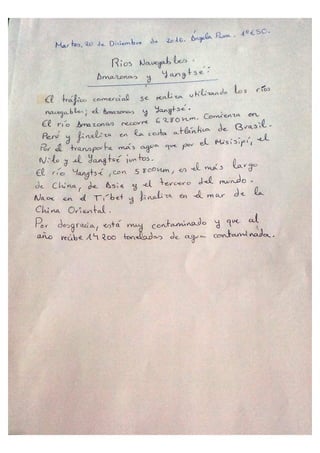 Martes, 20 de Diciembre de 2016. Ángela Puna. 1º ESO.
Rios Navegables.
Amazonas y Yangtsé:
El tráfico comercial se realiza utilizando los ríos
navegables; el Amazonas y Yangtsé.
El río Amazonas recorre 6280 Km. Comienza en
Perú y finaliza en la costa atlántica de Brasil.
Por él transporta más agua que por el Misisipi, el
Nilo y el Yangtsé juntos.
El río Yangtsé, con 5800Km, es el más largo
de China, de Asia y el tercero del mundo.
Nace en el Tíbet y finaliza en el mar de la
China Oriental.
Por desgracia, está muy contaminado y que al
año recibe 14 200 toneladas de agua contaminada.